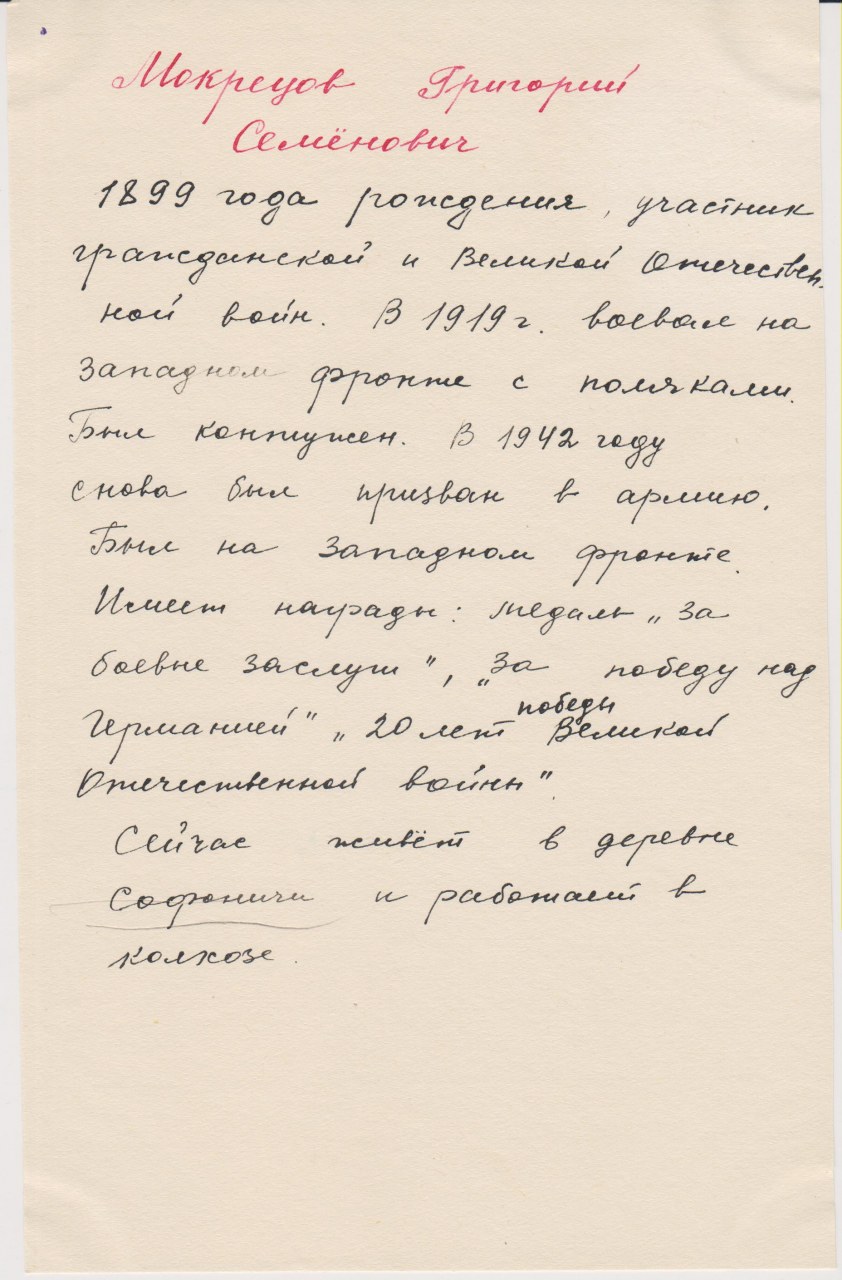 Мокрецов Григорий
Семёнович
1899 года рождения, участник
гражданской и Великой Отечествен-
ной войн. В 1919 г. воевал на
Западном фронте с поляками.
Был контужен. В 1942 году
снова был призван в армию.
Был на Западном фронте.
Имеет награды: медаль „За
боевые заслуги", „За победу над
Германией" „20 лет победы Великой
Отечественной войны".
Сейчас живёт в деревне
Софоничи и работает в
колхозе.